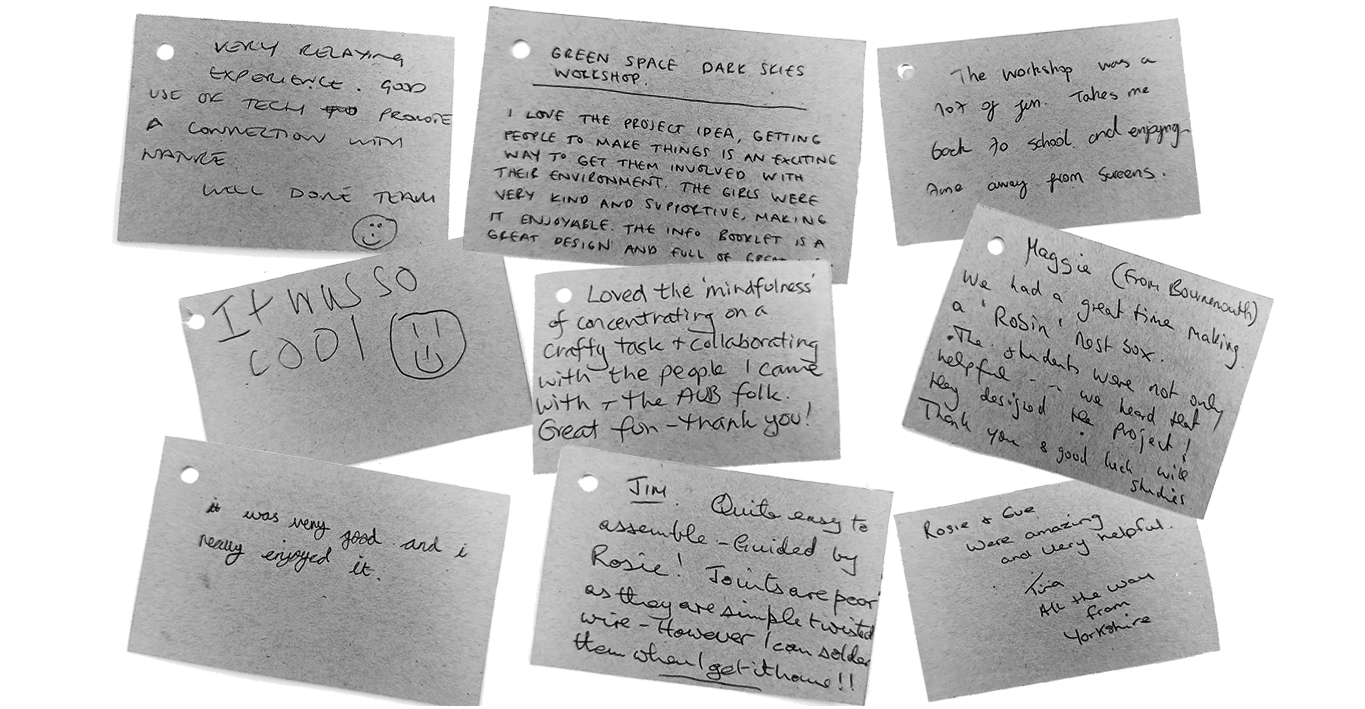 VERY RELAXING
EXPERIENCE. GOOD
USE OF TECH PROMOTE
A CONNECTION WITH
NATURE.
WELL DONE TEAM
GREEN SPACE DARK SKIES
WORKSHOP.
I LOVE THE PROJECT IDEA, GETTING
PEOPLE TO MAKE THINGS IS AN EXCITING
WAY TO GET THEM INVOLVED WITH
THEIR ENVIRONMENT. THE GIRLS WERE
VERY KIND AND SUPPORTIVE, MAKING
IT ENJOYABLE. THE INFO BOOKLET IS A
GREAT DESIGN AND FULL OF
The workshop was a
lot of fun. Takes me
back to school and enjoying
time away from screens.
It was so
cool
Loved the 'mindfulness'
of concentrating on a
crafty task + collaborating
with the people I came
with + the AUB folk.
Great fun - thank you!
Maggie (From Bournemouth)
We had a great time making
a 'Robin' Nest box.
The students were not only
helpful -- we heard that
they designed the project!
Thank you & good luck with
studies
it was very good and i
really enjoyed it.
JIM. Quite easy to
assemble - Guided by
Rosie! Joints are poor
as they are simple twisted
wire - However I can solder
them when I get it home!!
Rosie & Eve
were amazing
and very helpful.
Tina
All the way
from
Yorkshire